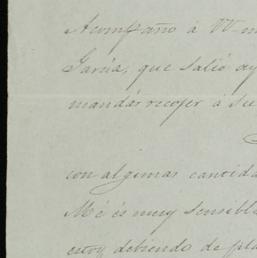 Acompaño á VV
García, que salió ay
mandás recojer á su
con algunas cantida
Mé és muy sensibl
estoy debiendo de pla